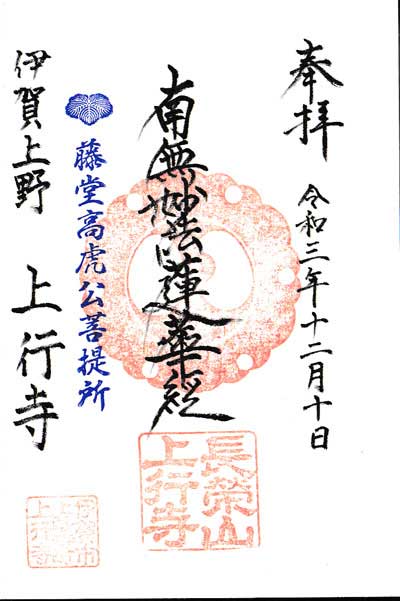 奉拝
令和三年十二月十日
南無妙法蓮華経
長榮山
上行寺
藤堂高虎公菩提所
伊賀上野
上行寺